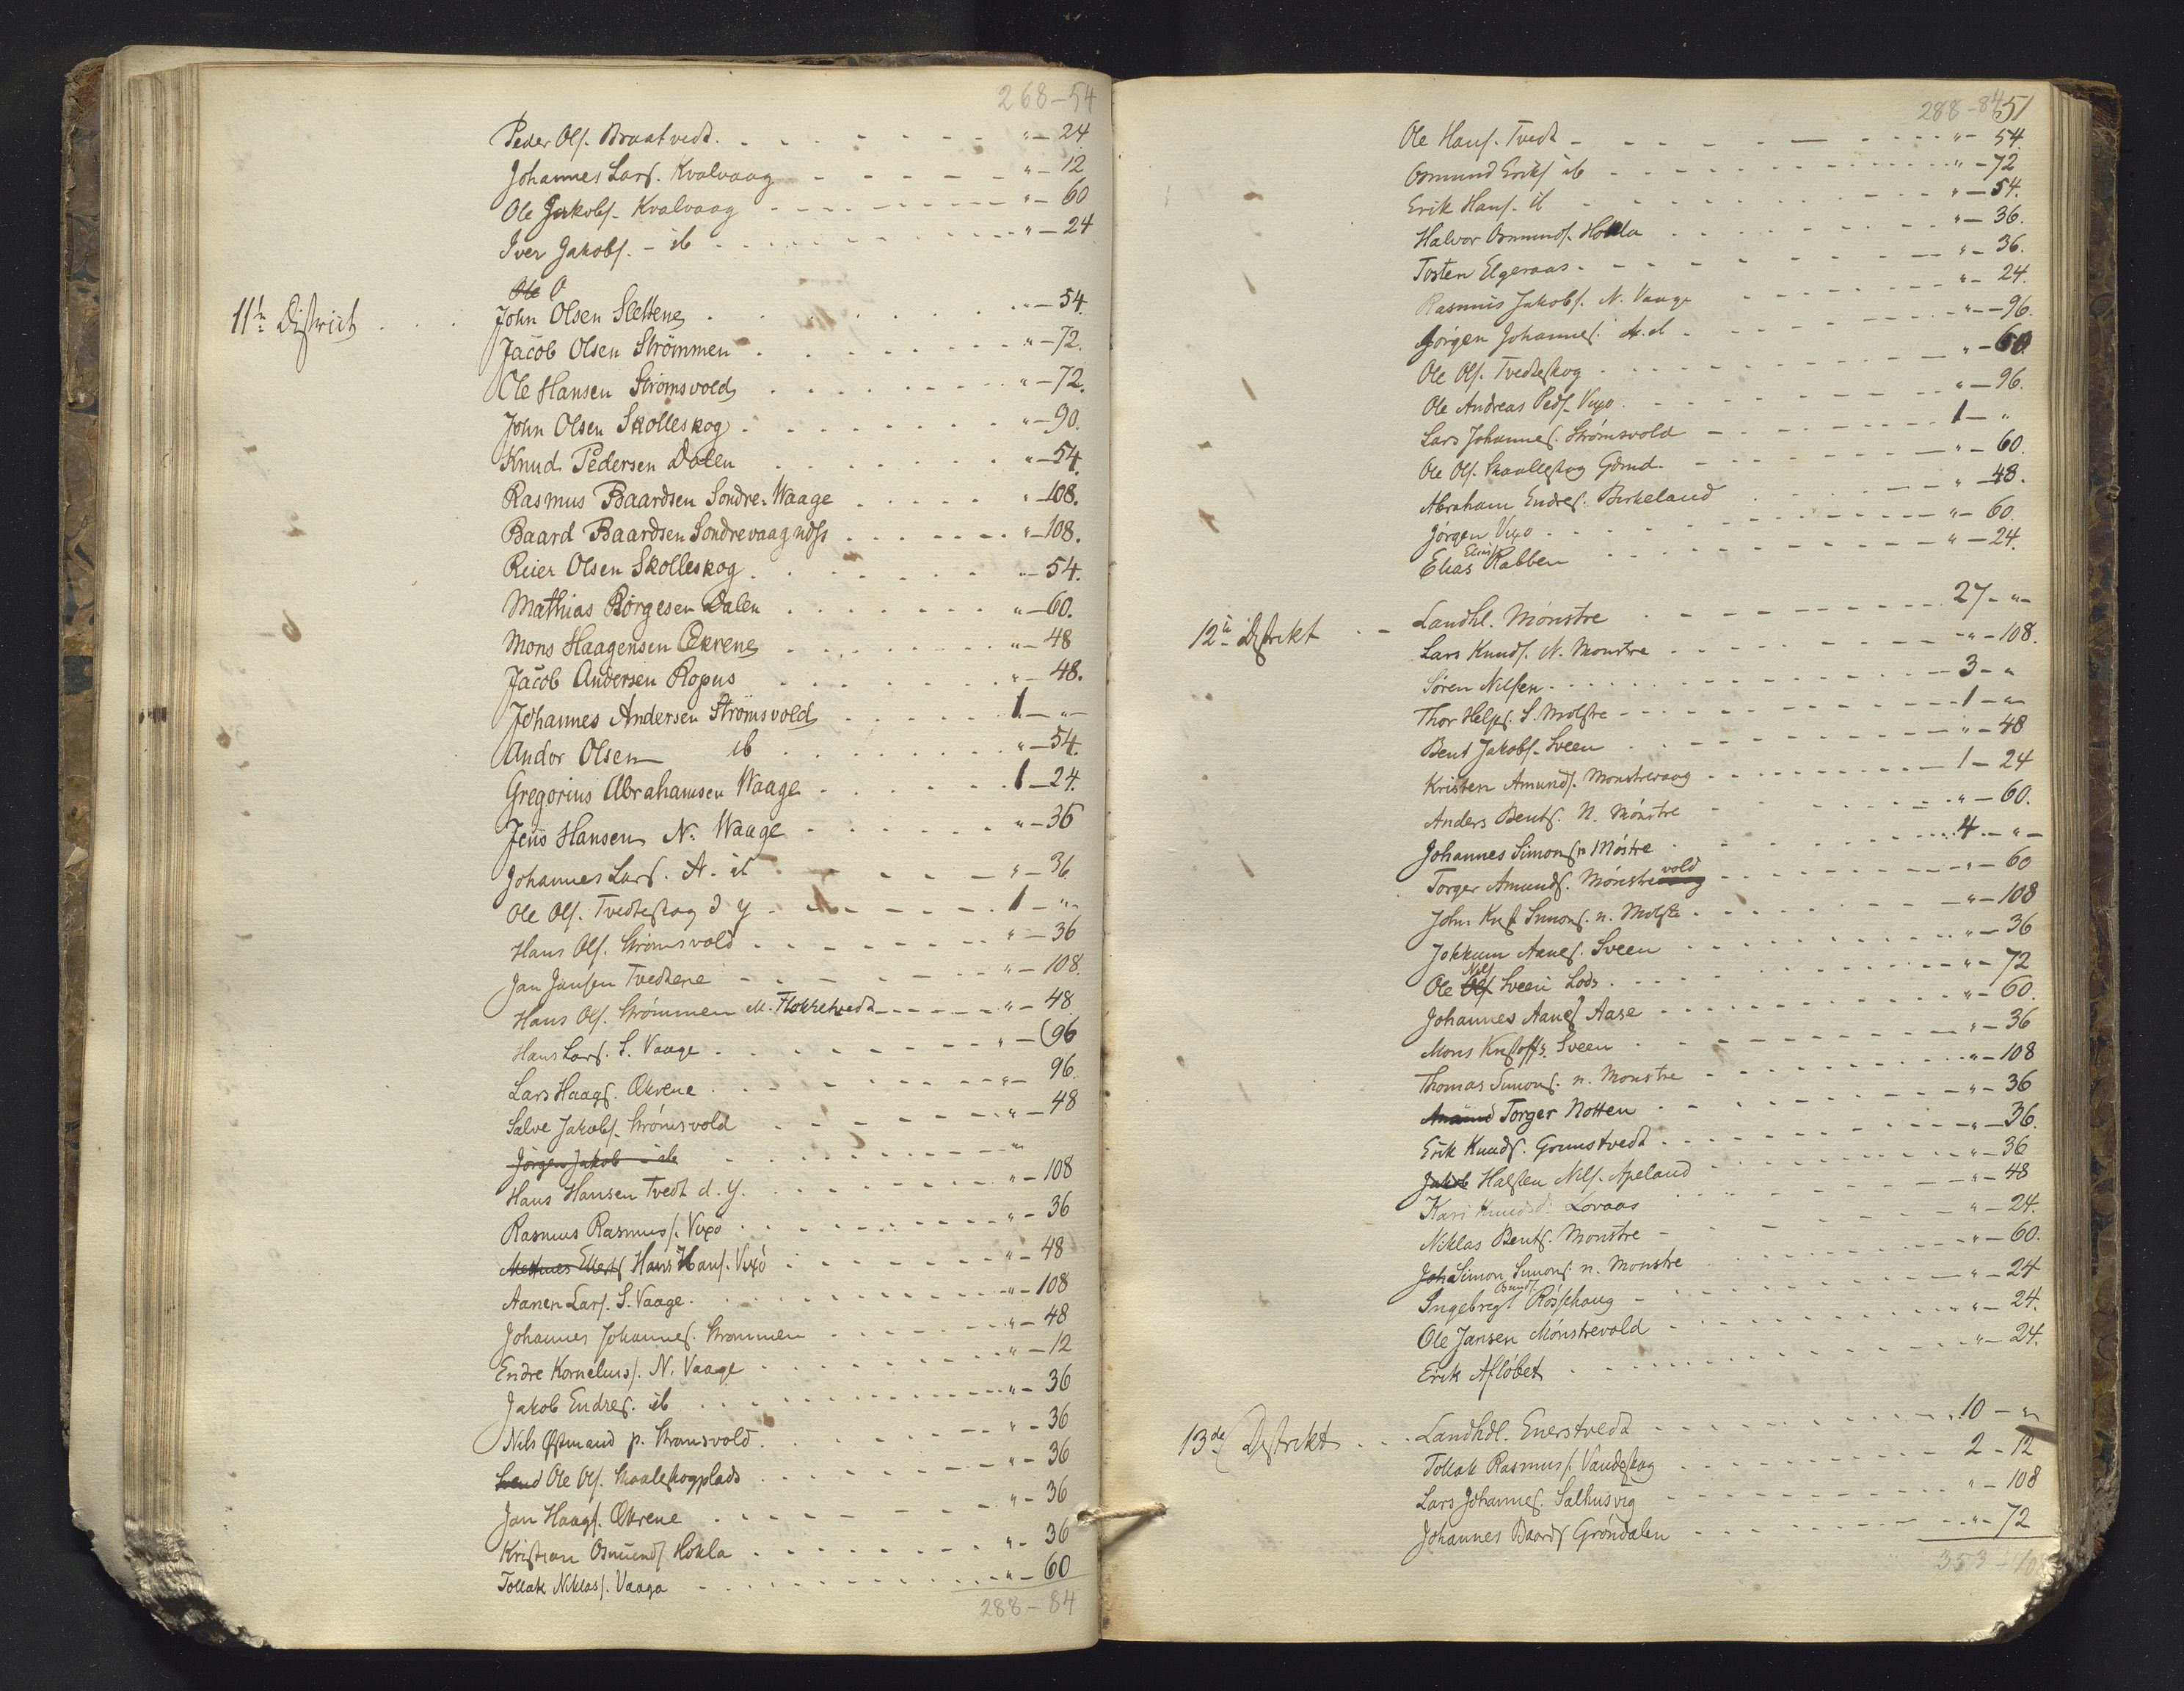 268-54
Peder Ols. Braatvedt. " - 24
Johannes Lars. Kvalvaag " - 12
Ole Jakobs. Kvalvaag " - 60
Iver Jakobs. - ib " - 24
Ole O
11te District John Olsen Slettene " - 54.
Jacob Olsen Strömmen " - 72.
Ole Hansen Strömsvold " - 72.
John Olsen Skolleskog " - 90.
Knud Pedersen Dalen " - 54.
Rasmus Baardsen Søndre-Waage " - 108.
Baard Baardsen Søndrevaag " - 108.
Reier Olsen Skolleskog " - 54.
Mathias Børgesen Dalen " - 60.
Mons Haagensen Œkrene " - 48
Jacob Andersen Ropus " - 48.
Johannes Andersen Strömsvold 1 - "
Andor Olsen ib " - 54.
Gregorius Abrahamsen Waage 1 - 24.
Jens Hansen N. Waage " - 36
Johannes Lars. N. ib " - 36
Ole Ols. Tvedteskog d y 1 - "
Hans Ols. Strömsvold " - 36
Jan Jansen Tvedtene " - 108.
Hans Ols. Strømmen M. Flokketvedt " - 48
Hans Lars. S. Vaage " - 96
Lars Haags. Œkrene " - 96.
Salve Jakobs. Strömsvold " - 48
Jørgen Jakob - ib "
Hans Hansen Tvedt d. y. " - 108
Rasmus Rasmus. Vixø " - 36
Hans Hans. Vixø " - 48
Aanen Lars. S. Vaage " - 108
Johannes Johannes. Strømmen " - 48
Endre Kornelius. N. Vaage " - 12
Jakob Endres. ib " - 36
Nils Østmand p. Strømsvold. " - 36
Svend Ole Ols. Skaaleskogplads " - 36
Jan Haags. Œkrene " - 36
Kristian Osmunds. Hokla " - 36
Tollak Niklas. Vaage " - 60
288-84
288-84 51
Ole Hans. Tvedt " - 54.
Osmund Eriks. ib " - 72
Erik Hans. ib " - 54.
Halvor Osmunds. Hokla " - 36.
Tosten Elgeraas " - 36.
Rasmus Jakobs. N. Vaage " - 24.
Jörgen Johannes. N. ib " - 96.
Ole Ols. Tvedteskog " - 60
Ole Andreas Peds. Vixø " - 96.
Lars Johannes. Strømsvold 1 - "
Ole Ols. Skaalleskog Gdmd. " - 60.
Abraham Endres. Birkeland " - 48.
Jørgen Vixø " - 60.
Elias Elias. Rabben " - 24.
12te Distrikt Landhl. Mønstre 27 - "
Lars Knuds. N. Monstre " - 108.
Søren Nilsen 3 - "
Thor Helges. S. Mølstre 1 - "
Bent Jakobs. Sveen " - 48
Kristen Amunds. Monstrevaag 1 - 24
Anders Bents. N. Mönstre " - 60.
Johannes Simons. n Möstre 4 - "
Torger Amunds. Mönstrevold " - 60
John Simons. n. Molstre " - 108
Jokkum Aanes. Sveen " - 36
Ole Nils. Sveen Lods " - 72
Johannes Aanes. Aase " - 60.
Mons Kristoffs. Sveen " - 36
Thomas Simons. n. Monstre " - 108
Amund Torger Notten " - 36
Erik Knuds. Grunstvedt " - 36.
Jakob Halsten Nils. Apeland " - 36
Kari Knudsd. Lovaas " - 48
Niklas Bents. Monstre " - 24.
Joh Simon Simons. n. Monstre " - 60.
Ingebrigt Røsshaug " - 24
Ole Jansen Mönstrevold " - 24.
Erik Afløbet " - 24.
13de Distrikt Landhdl. Enerstvedt 10 - "
Tollak Rasmus. Vandeskog 2 - 12
Lars Johannes. Salhusvig " - 108
Johannes Baards. Gröndalen " - 72
353-108